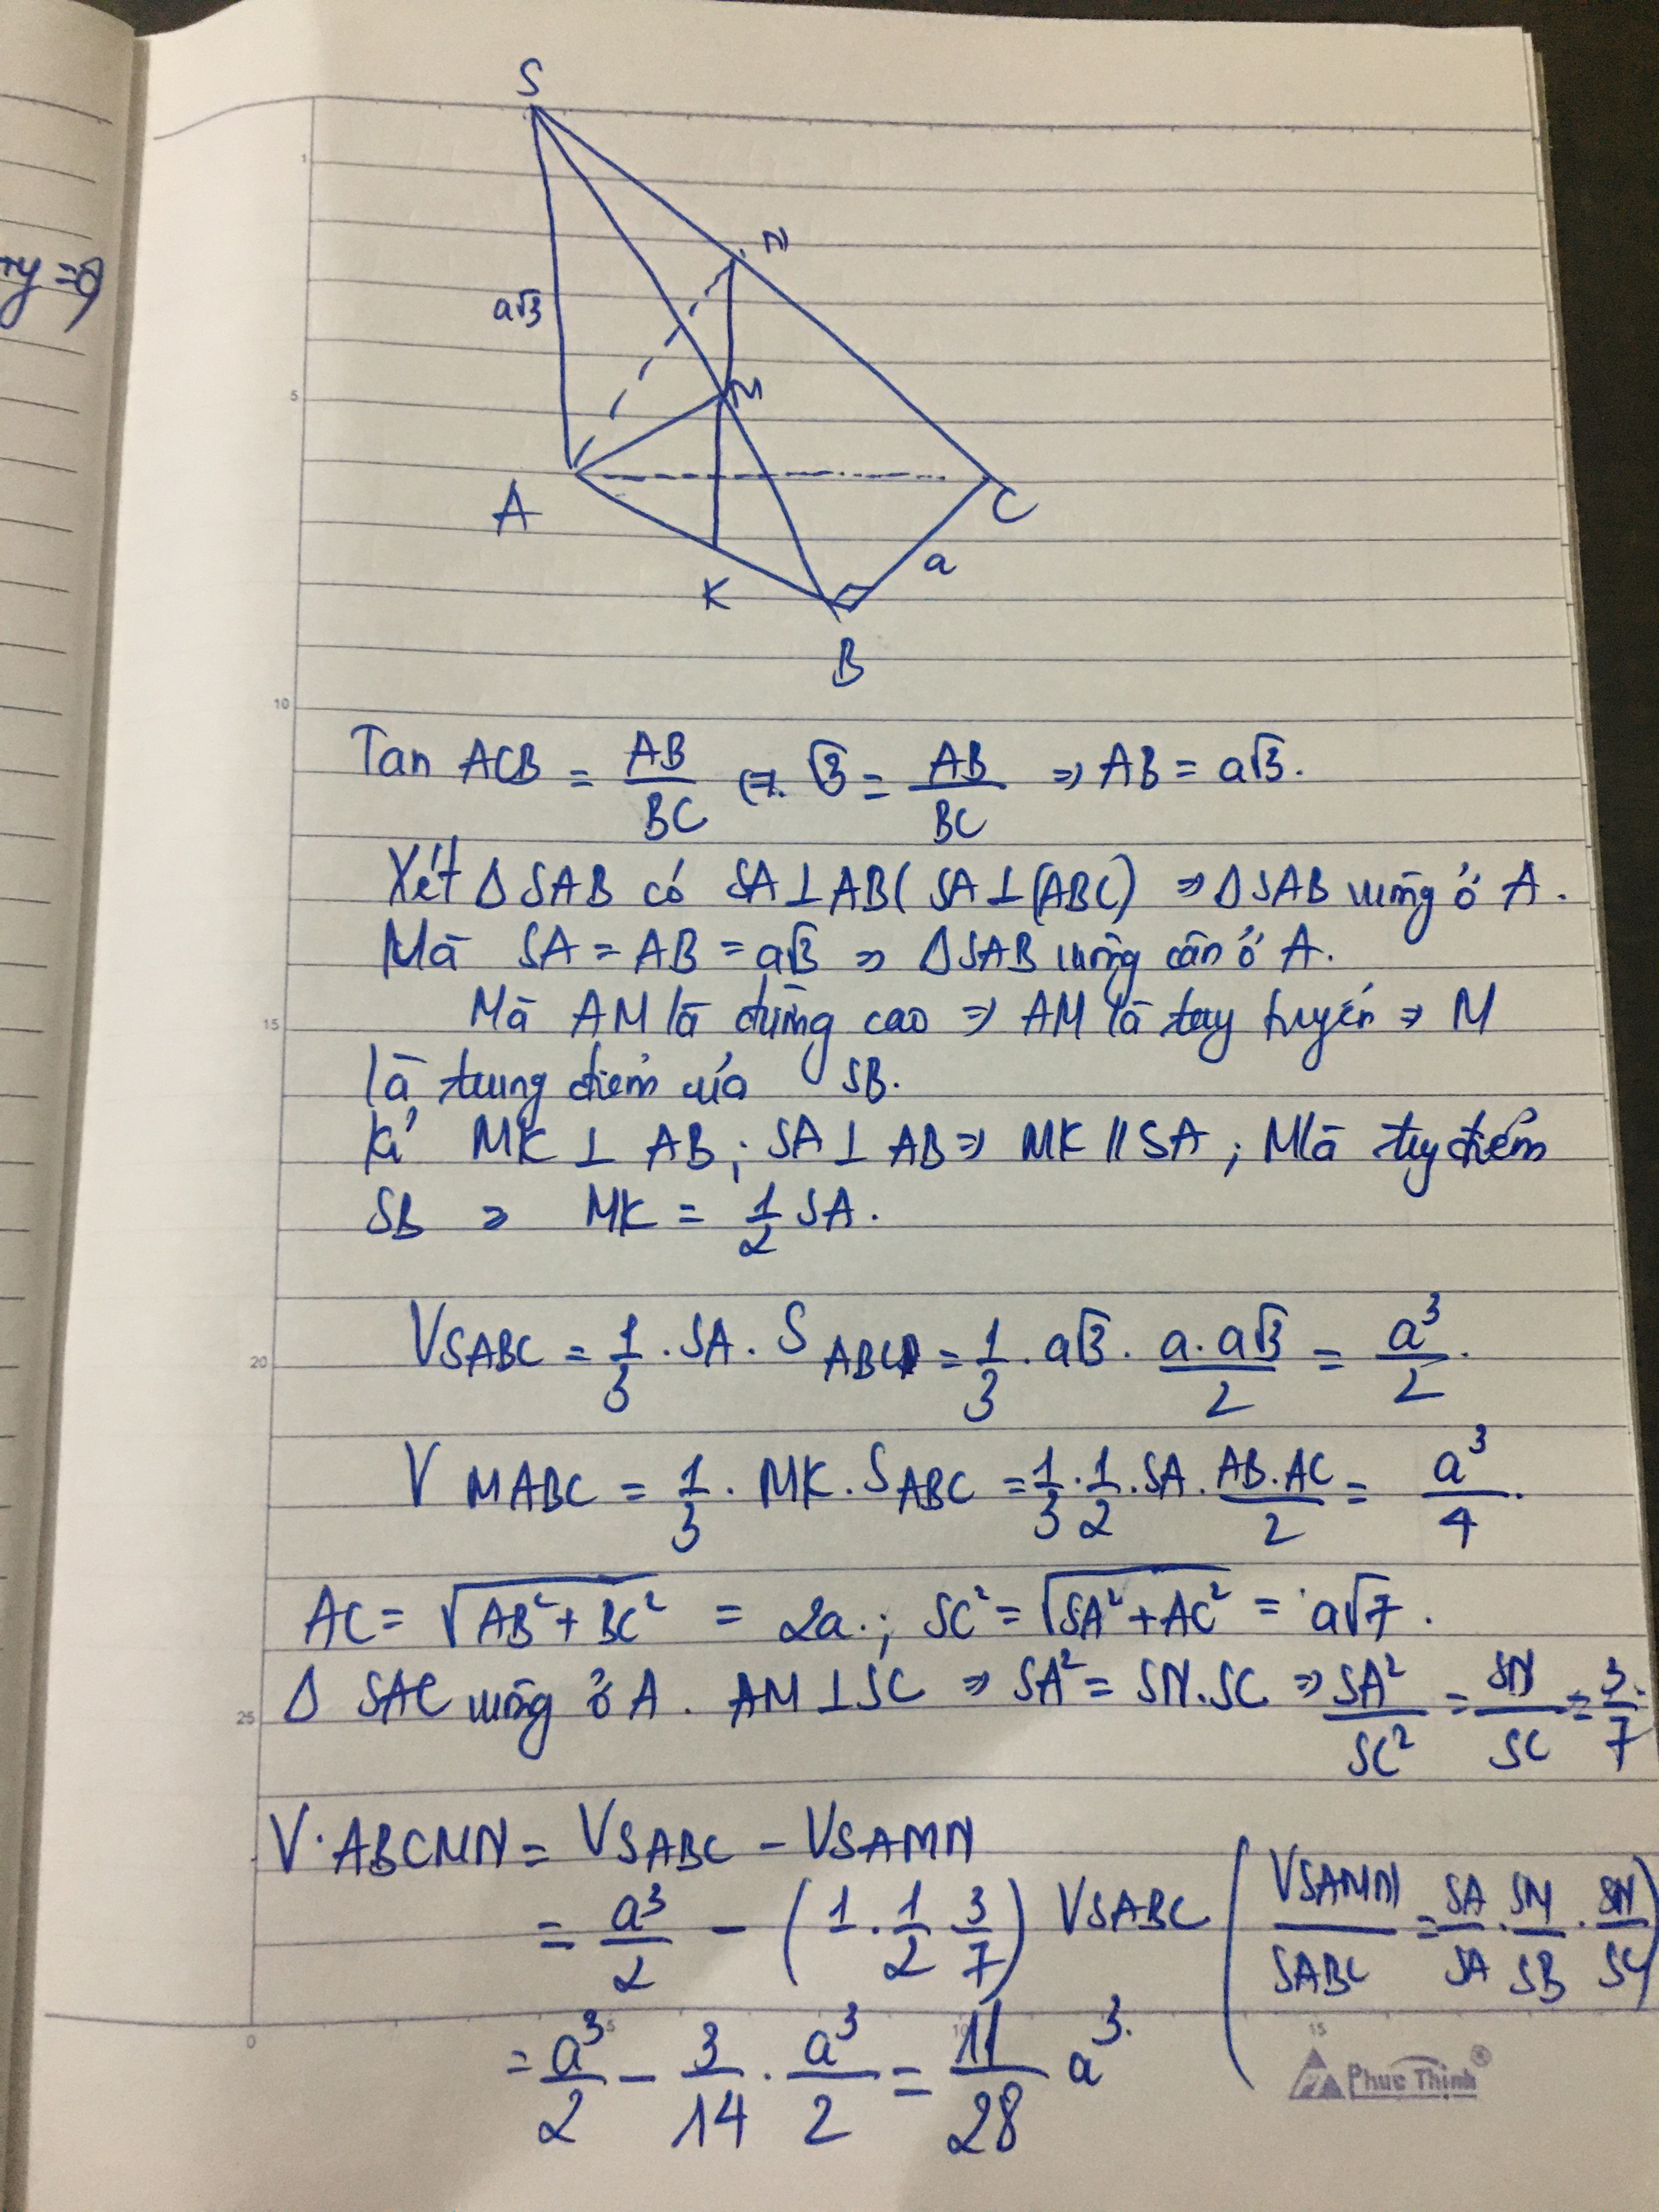 +y=9
S
N
a√3
M
A
C
a
K
B
1
5
10
15
20
25
Tan ACB = AB/BC ⇔ √3 = AB/BC ⇒ AB = a√3.
Xét Δ SAB có SA ⊥ AB ( SA ⊥ (ABC) ⇒ Δ SAB vuông ở A.
Mà SA = AB = a√3 ⇒ ΔSAB vuông cân ở A.
Mà AM là đường cao ⇒ AM là tuyến ⇒ M
là trung điểm của SB.
Kẻ MK ⊥ AB ; SA ⊥ AB ⇒ MK // SA ; M là điểm
SB ⇒ MK = 1/2 SA.
VSABC = 1/3 . SA . S ABC = 1/3 . a√3 . a.a√3/2 = a³/2.
V MABC = 1/3 . MK . S ABC = 1/3 . 1/2 . SA . AB.AC/2 = a³/4.
AC = √(AB² + BC²) = 2a. ; SC² = √(SA² + AC²) = a√7.
Δ SAC vuông ở A. AM ⊥ SC ⇒ SA² = SN.SC ⇒ SA²/SC² = SN/SC = 3/7
V.ABCMN = VSABC - VSAMN
= a³/2 - (1 . 1/2 3/7) VSABC ( VSAMN/SABC = SA/SA . SM/SB . SN/SC )
= a³/2 - 3/14 . a³/2 = 11/28 a³.
0 5 10 15
Phuc Thinh®